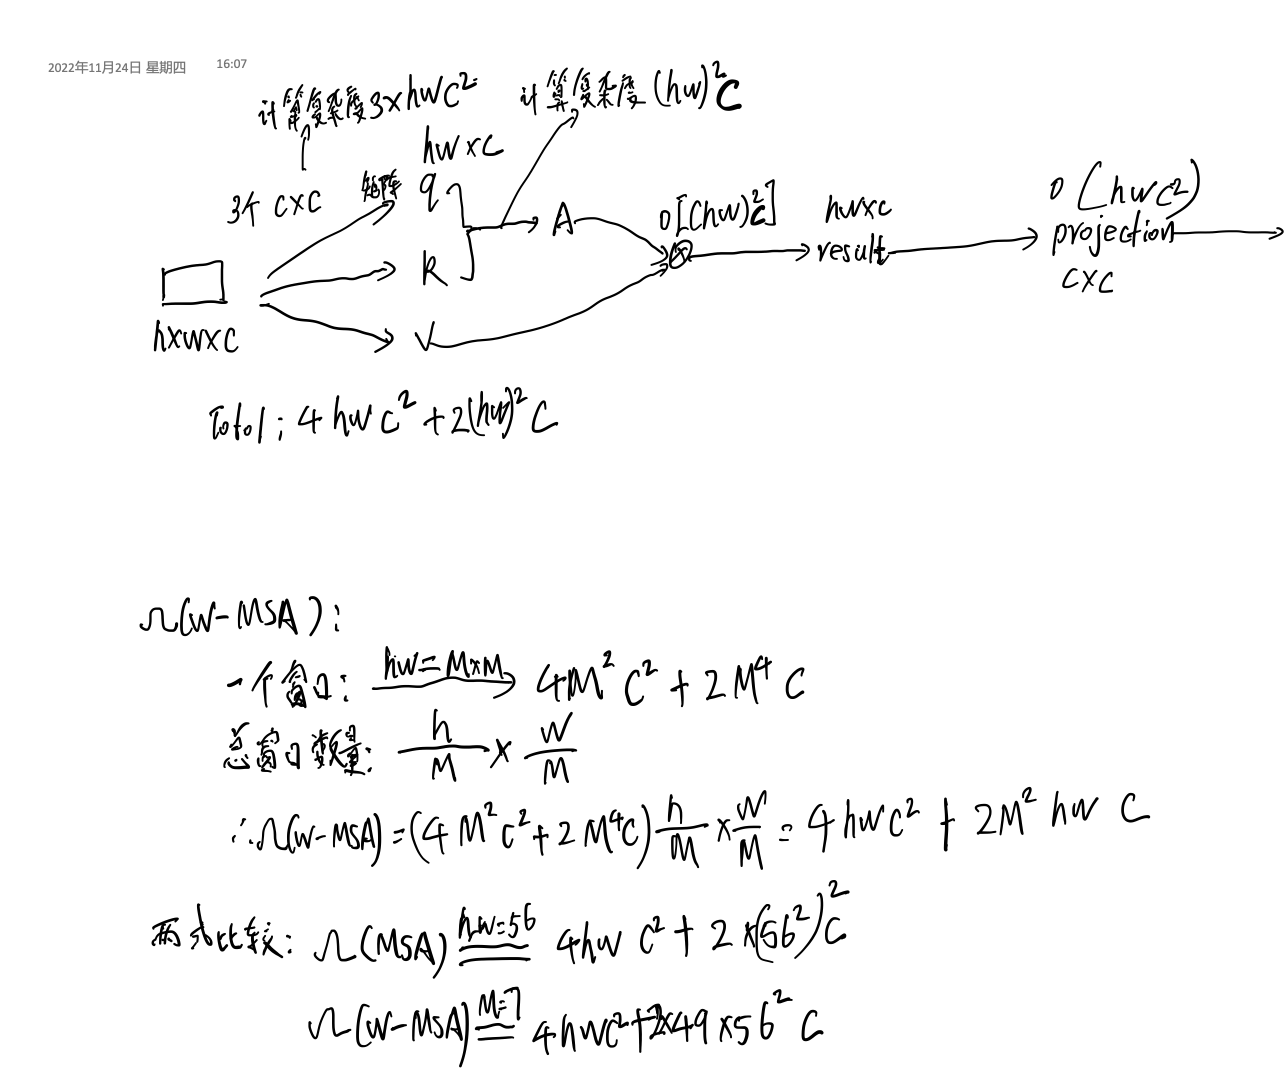 2022年11月24日 星期四 16:07
计算复杂度3×hwC²
计算复杂度(hw)²C
hw×C
3个 C×C
矩阵
q
k
v
A
O[(hw)²C]
hw×c
result
O(hwc²)
projection
C×C
h×w×C
Total: 4hwC²+2(hw)²C
Ω(W-MSA):
一个窗口: hw=M×M 4M²C²+2M⁴C
总窗口数量: h/M × W/M
∴Ω(W-MSA)=(4M²C²+2M⁴C) h/M × W/M = 4hwC²+2M²hwC
两式比较: Ω(MSA) hw=56 4hwC²+2×(56²)²C
Ω(W-MSA) M=7 4hwC²+2×49×56²C